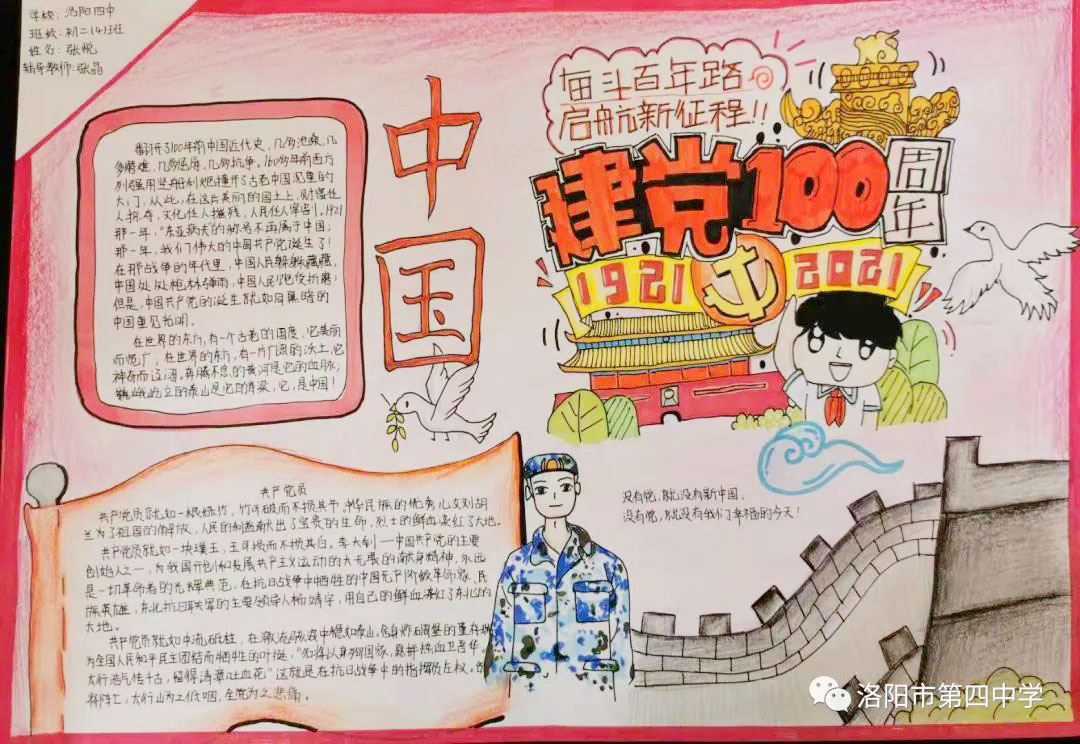 学校：洛阳四中
班级：初二（4）班
姓名：张悦
辅导教师：张晶
奋斗百年路
启航新征程!!
建党100周年
1921
2021
中国
翻开了100年前中国近代史，几多沧桑，几
多磨难，几多屈辱，几多抗争。160多年前西方
列强用坚船利炮撞开了古老中国沉重的
大门，从此，在这片美丽的国土上，财富任
人掠夺，文化任人摧残，人民任人宰割。1921
那一年，"东亚病夫的称号不再属于中国；
那一年，我们伟大的中国共产党诞生了！
在那战争的年代里，中国人民躲躲藏藏，
中国处处枪林弹雨，中国人民饱受折磨；
但是，中国共产党的诞生就如同黑暗的
中国重见光明。
在世界的东方，有一个古老的国度，它美丽
而宽广；在世界的东方，有一片广阔的沃土，它
神奇而辽阔。奔腾不息的黄河是它的血脉；
巍峨屹立的泰山是它的脊梁，它，是中国！
共产党员
共产党员就如一根绿竹，竹可破而不损其节，中华民族的优秀儿女刘胡
兰为了祖国的解放，人民的利益献出了宝贵的生命，烈士的鲜血染红了大地。
共产党员就如一块璞玉，玉可损而不损其白。李大钊一中国共产党的主要
创始人之一，为我国开创和发展共产主义运动的大无畏的献身精神，永远
是一切革命者的光辉典范，在抗日战争中牺牲的中国无产阶级革命家，民
族英雄，东北抗日联军的主要领导人杨靖宇，用自己的鲜血染红了东北的
大地。
共产党员就如中流砥柱，在激流骇浪中稳如泰山，舍身炸碉堡的董存瑞
为全国人民和平民主团结而牺牲的叶挺，"名将以身殉国家，愿拼热血卫吾华。
太行浩气传千古，留得清漳吐血花"这就是在抗日战争中的指挥员左权。
将阵亡，太行山为之低咽，全党为之悲痛。
没有党，就没有新中国。
没有党，就没有我们幸福的今天！
洛阳市第四中学